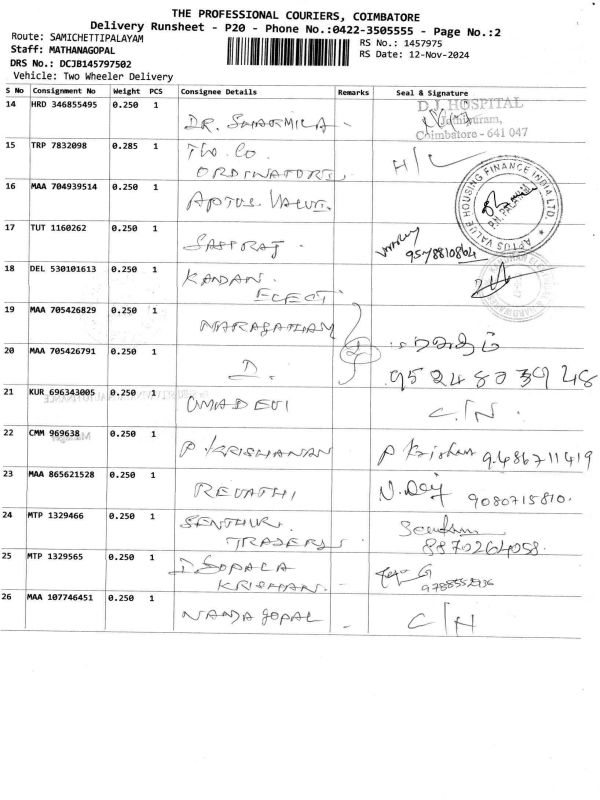 THE PROFESSIONAL COURIERS, COIMBATORE
Delivery Runsheet - P20 - Phone No.:0422-3505555 - Page No.:2
Route: SAMICHETTIPALAYAM
RS No.: 1457975
Staff: MATHANAGOPAL
RS Date: 12-Nov-2024
DRS No.: DCJB145797502
Vehicle: Two Wheeler Delivery
S No Consignment No Weight PCS Consignee Details Remarks Seal & Signature
14 HRD 346855495 0.250 1 DR. SHARMILA - D.J. HOSPITAL
Coimbatore - 641 047
15 TRP 7832098 0.285 1 THE. CO. H/L
ORDINATORS
16 MAA 704939514 0.250 1 APTUS. VALUE. APTUS VALUE HOUSING FINANCE INDIA LTD.
P.N. PALAYAM
17 TUT 1160262 0.250 1
9578810864
18 DEL 530101613 0.250 1 KANDAN.
ELECT
19 MAA 705426829 0.250 1
20 MAA 705426791 0.250 1 D.
21 KUR 696343005 0.250 1 UMADEVI C/N.
22 CMM 969638 0.250 1 P. KRISHANAN P Krishan 9486711419
23 MAA 865621528 0.250 1 REVATHI 9080715810.
24 MTP 1329466 0.250 1 SENTHUR.
TRADERS 8870264058.
25 MTP 1329565 0.250 1 GOPALA
KRISHNAN.
26 MAA 107746451 0.250 1 NANDAGOPAL - C/H